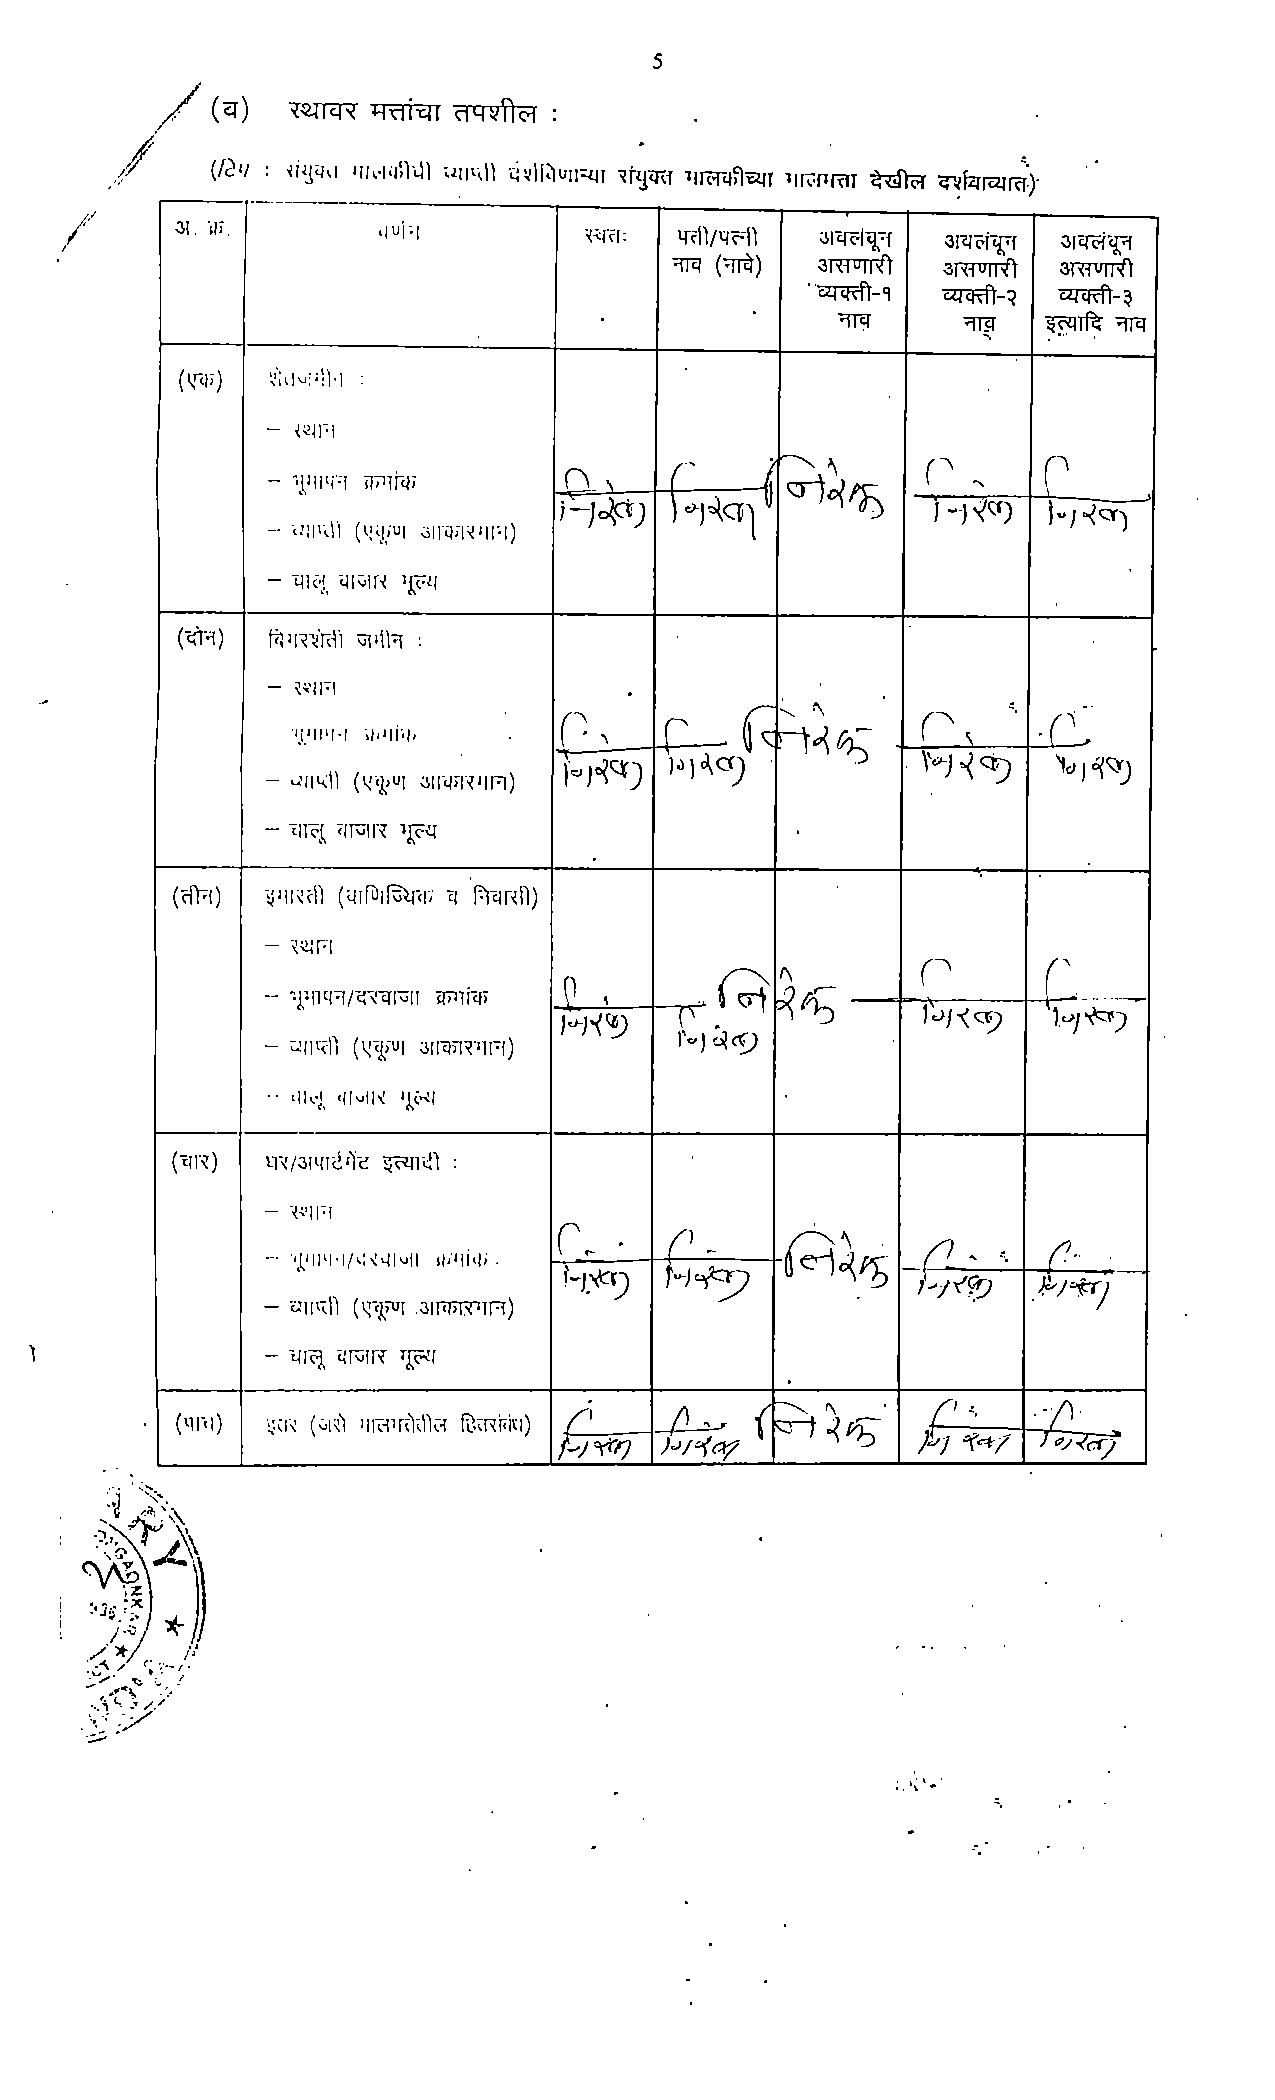 5
(ब) स्थावर मत्तांचा तपशील :
(टिप : संयुक्त मालकीची व्याप्ती दर्शविणाऱ्या संयुक्त मालकीच्या मालमत्ता देखील दर्शवाव्यात)
अ. क्र. वर्णन स्वतः पती/पत्नी नाव (नावे) अवलंबून असणारी व्यक्ती-१ नाव अवलंबून असणारी व्यक्ती-२ नाव अवलंबून असणारी व्यक्ती-३ इत्यादि नाव
(एक) शेतजमीन :
– स्थान
– भूमापन क्रमांक
निरंक निरंक निरंक निरंक निरंक
– व्याप्ती (एकूण आकारमान)
– चालू बाजार मूल्य
(दोन) बिगरशेती जमीन :
– स्थान
भूमापन क्रमांक
निरंक निरंक निरंक निरंक निरंक
– व्याप्ती (एकूण आकारमान)
– चालू बाजार मूल्य
(तीन) इमारती (वाणिज्यिक व निवासी)
– स्थान
– भूमापन/दरवाजा क्रमांक
निरंक निरंक निरंक निरंक निरंक
– व्याप्ती (एकूण आकारमान)
– चालू बाजार मूल्य
(चार) घर/अपार्टमेंट इत्यादी :
– स्थान
– भूमापन/दरवाजा क्रमांक
निरंक निरंक निरंक निरंक निरंक
– व्याप्ती (एकूण आकारमान)
– चालू बाजार मूल्य
(पाच) इतर (जसे मालमत्तेतील हितसंबंध) निरंक निरंक निरंक निरंक निरंक